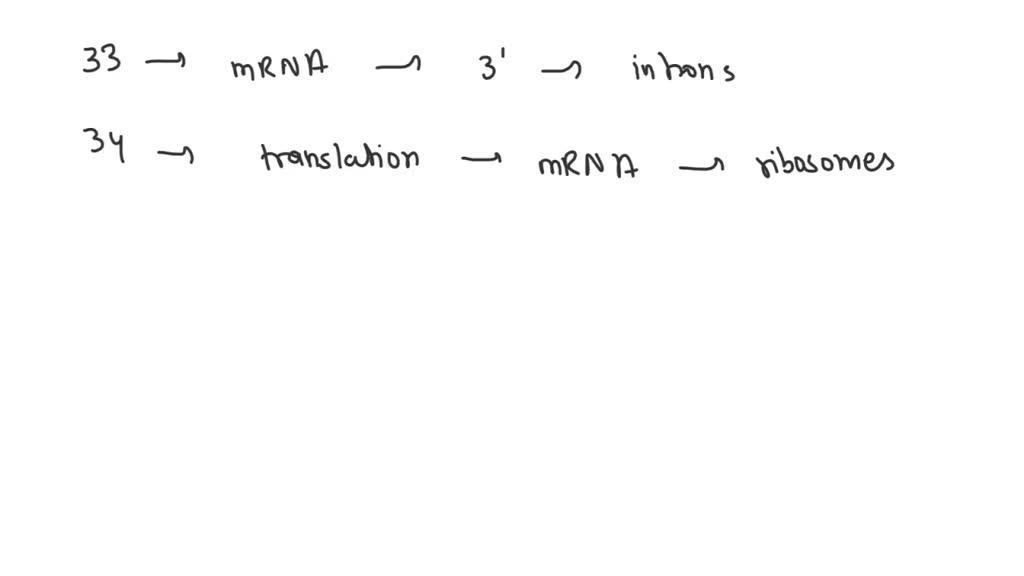 33 → mRNA → 3' → introns
34 → translation → mRNA → ribosomes